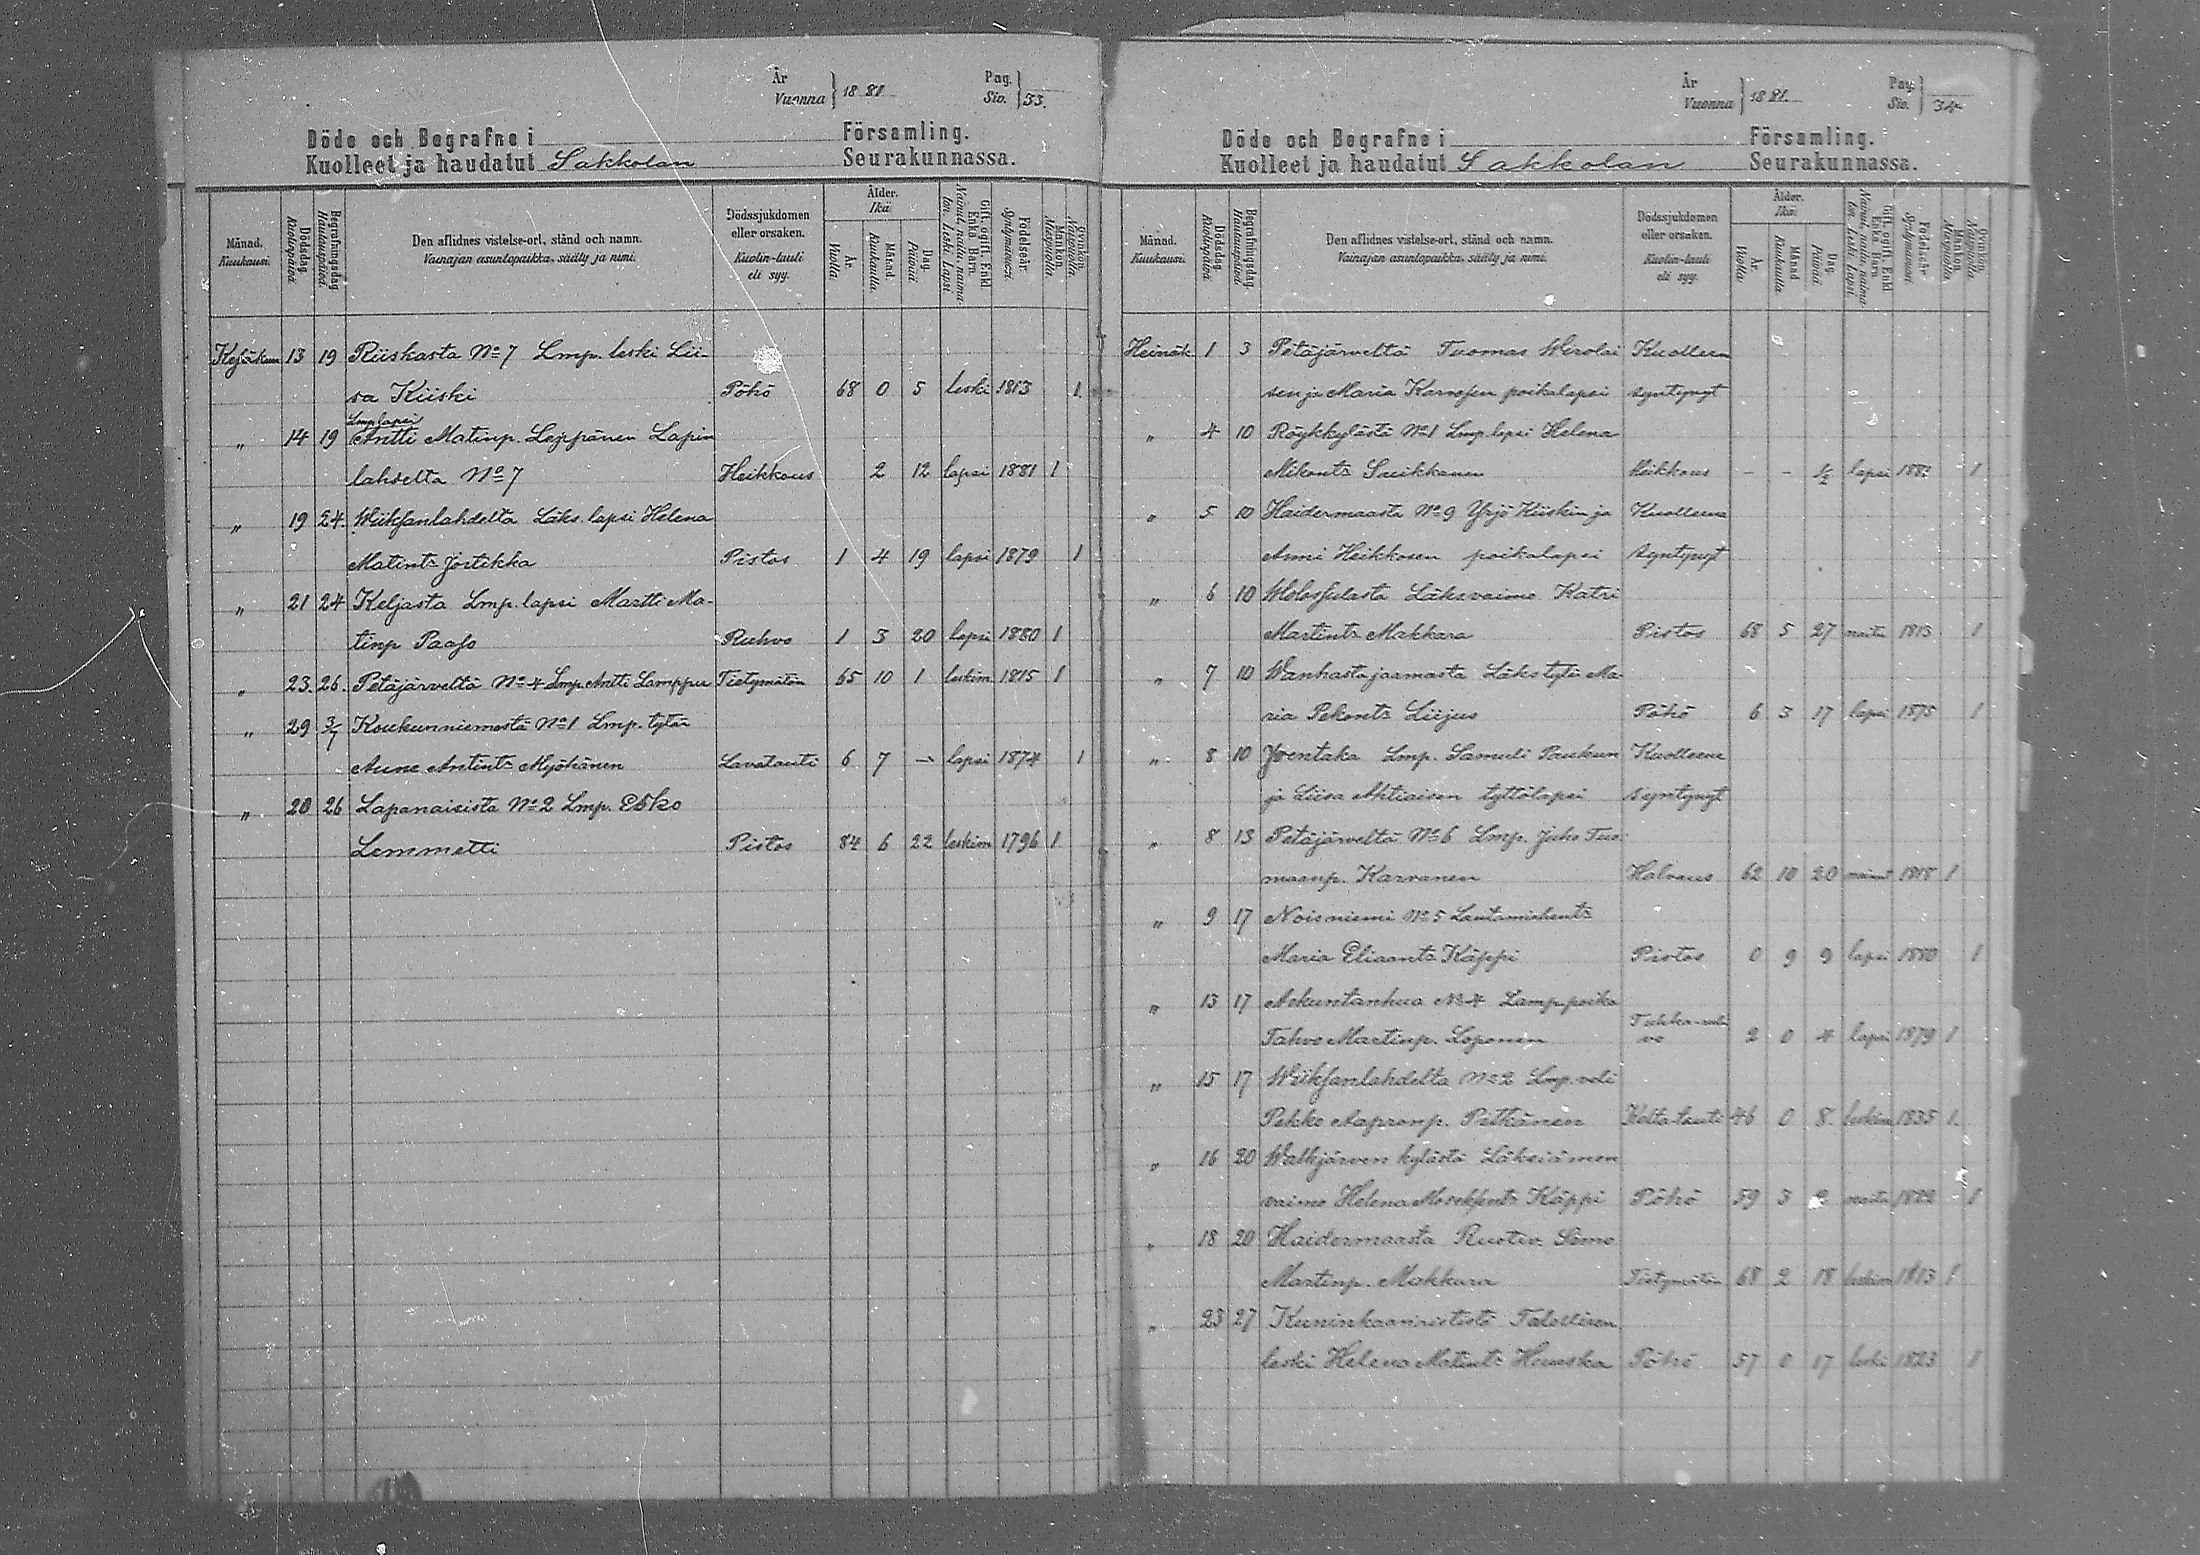 År
Vuonna } 18 81.
Pag.
Siv. } 33.
Döde och Begrafne i Församling.
Kuolleet ja haudatut Sakkolan Seurakunnassa.
Månad. Kuukausi.
Dödsdag. Kuolinpäivä.
Begrafningsdag. Hautauspäivä.
Den aflidnes vistelse-ort, stånd och namn.
Vainajan asuntopaikka, sääty ja nimi.
Dödssjukdomen eller orsaken.
Kuolin-tauti eli syy.
Ålder. Ikä.
År. Vuolta.
Månad. Kuukautta.
Dag. Päivää.
Gift, ogift, Enkl. Enka, Barn.
Nainut, naitu, naimaton, Leski, Lapsi.
Födelseår. Syntymävuosi.
Mankön. Miespuolta.
Qvinkön. Vaimopuolta.
Kesäkuu 13 19 Riiskasta No 7 Lmp. leski Lii-
sa Kiiski Pöhö 68 0 5 leski 1813 1.
Lmp lapsi
„ 14 19 Antti Matinp. Leppänen Lapin
lahdelta No 7 Heikkous 2 12 lapsi 1881 1
„ 19 24 Wiiksanlahdelta Läks. lapsi Helena
Matint: Jortikka Pistos 1 4 19 lapsi 1879 1
„ 21 24 Keljasta Lmp. lapsi Martti Ma-
tinp Paaso Ruhvo 1 3 20 lapsi 1880 1
„ 23. 26. Petäjärveltä No 4 Lmp. Antti Lamppu Tietymätön 65 10 1 leskim 1815 1
„ 29 3/7 Koukunniemestä No 1 Lmp. tytär
Anne Antint: Myöhänen Lavatauti 6 7 — lapsi 1874 1
„ 20 26 Lapanaisista No 2 Lmp. Esko
Lemmetti Pistos 84 6 22 leskim 1796 1.
År
Vuonna } 18 81.
Pag.
Siv. } 34
Döde och Begrafne i Församling.
Kuolleet ja haudatut Sakkolan Seurakunnassa.
Månad. Kuukausi.
Dödsdag. Kuolinpäivä.
Begrafningsdag. Hautauspäivä.
Den aflidnes vistelse-ort, stånd och namn.
Vainajan asuntopaikka, sääty ja nimi.
Dödssjukdomen eller orsaken.
Kuolin-tauti eli syy.
Ålder. Ikä.
År. Vuolta.
Månad. Kuukautta.
Dag. Päivää.
Gift, ogift, Enkl. Enka, Barn.
Nainut, naitu, naimaton, Leski, Lapsi.
Födelseår. Syntymävuosi.
Mankön. Miespuolta.
Qvinkön. Vaimopuolta.
Heinäk. 1 3 Petäjärveltä Tuomas Wirolai Kuolleena
sen ja Maria Karvosen poikalapsi syntynyt
„ 4 10 Röykkylästä No 1 Lmp. lapsi Helena
Mikont: Suikkanen Heikkous - - 1/2 lapsi 1881 1
„ 5 10 Haidermaasta No 9 Yrjö Kiiskin ja Kuolleena
Anni Heikkosen poikalapsi syntynyt
„ 6 10 Wolossulasta Läks.vaimo Katri
Martint: Makkara Pistos 68 5 27 naitu 1813 1
„ 7 10 Wanhastajaamasta Läks tytär Ma-
ria Pekont: Liijus Pöhö 6 3 17 lapsi 1875 1
„ 8 10 Joentaka Lmp. Samuli Paukun Kuolleena
ja Liisa Ahtiaisen tyttölapsi syntynyt
„ 8 13 Petäjärveltä No 6 Lmp. Juho Tuo-
maanp. Karvanen Halvaus 62 10 20 nainut 1818 1
„ 9 17 Noisniemi No 5 Lautamiehent:
Maria Eliaant: Käppi Pistos 0 9 9 lapsi 1880 1
„ 13 17 Askuntanhua No 4 Lamp.poika
Tahvo Martinp. Loponen Tuhka-ruhvo 2 0 4 lapsi 1879 1
„ 15 17 Wiiksanlahdelta No 2 Lmp. veli
Pekko Aapromp. Pitkänen Kelta-tauti 46 0 8 leskim 1835 1.
„ 16 20 Walkjärven kylästä Läksiämen
vaimo Helena Käppi Pöhö 59 3 9 naitu 1822 1
„ 18 20 Haidermaasta Ruotiv. Simo
Martinp. Makkara Tietymätön 68 2 18 leskim 1813 1
„ 23 27 Kuninkaanrististä Talollisen
leski Helena Matint: Hauska Pöhö 57 0 17 leski 1823 1